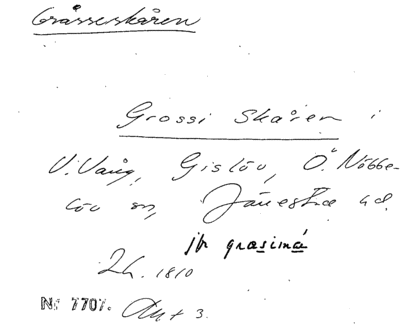 Gråsseskåren
Grossi Skåren i
V. Vång, Gislöv, Ö. Nöbbe-
löv sn, Järrestad hd.
jfr grasimá
Lh. 1810
No 7707. Akt 3.